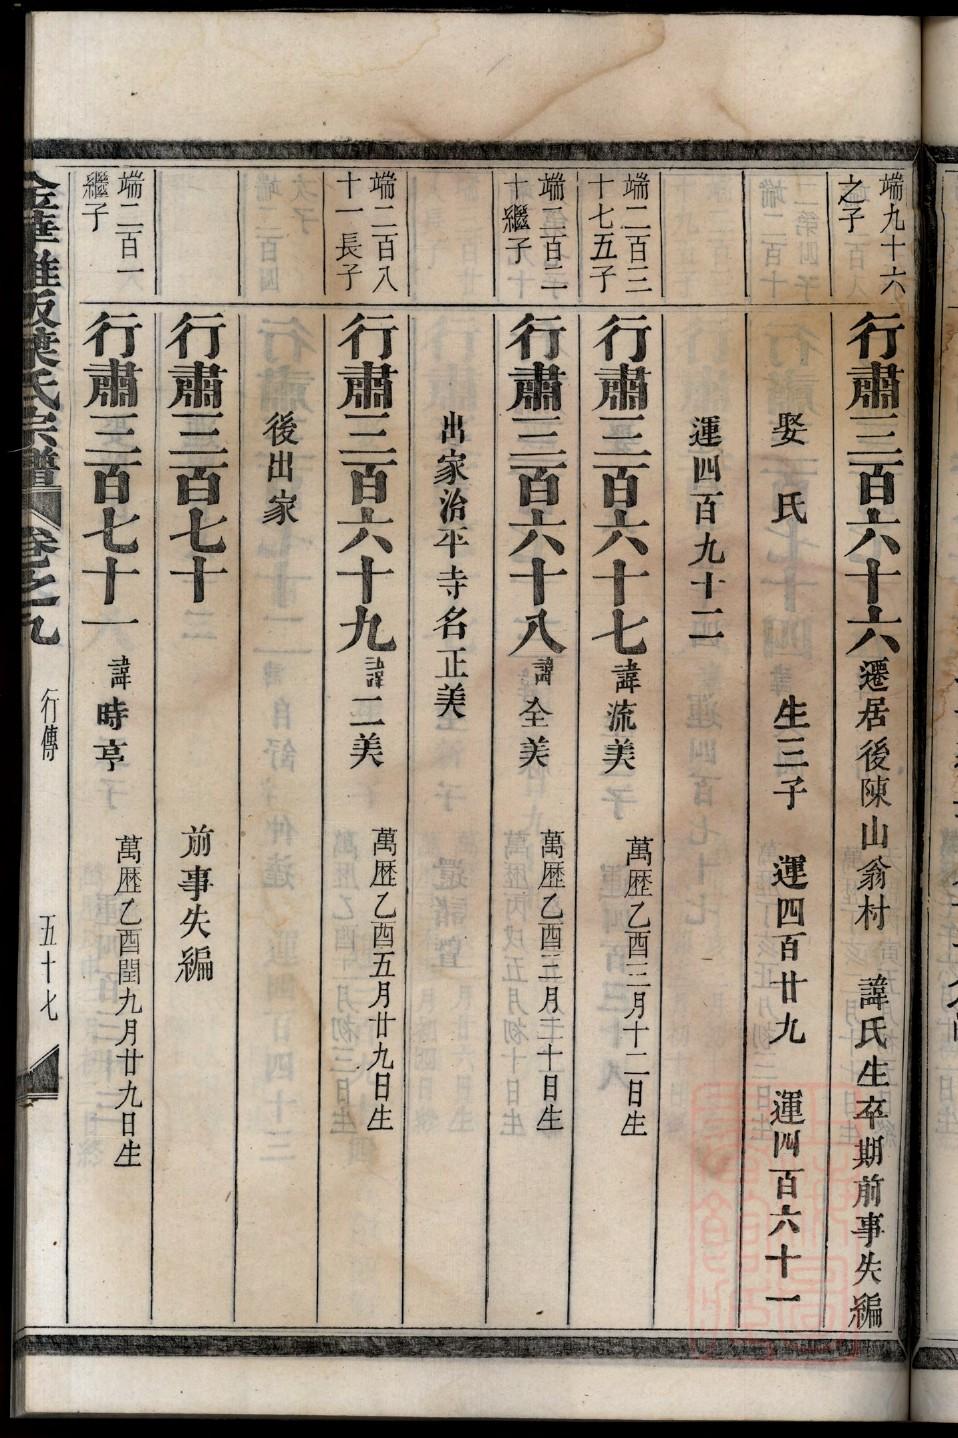 端九十六
之子
行肅三百六十六 遷居後陳山翁村 諱氏生卒期前事失編
娶 氏 生三子 運四百廿九 運四百六十一
運四百九十二
端二百三
十七五子
行肅三百六十七 諱流美 萬歷乙酉三月十二日生
端二百二
十繼子
行肅三百六十八 諱全美 萬歷乙酉三月三十日生
出家治平寺名正美
端二百八
十一長子
行肅三百六十九 諱二美 萬歷乙酉五月廿九日生
後出家
行肅三百七十 前事失編
端二百一
繼子
行肅三百七十一 諱時亨 萬歷乙酉閏九月廿九日生
金華 阪葉氏宗譜 卷之九 行傳 五十七